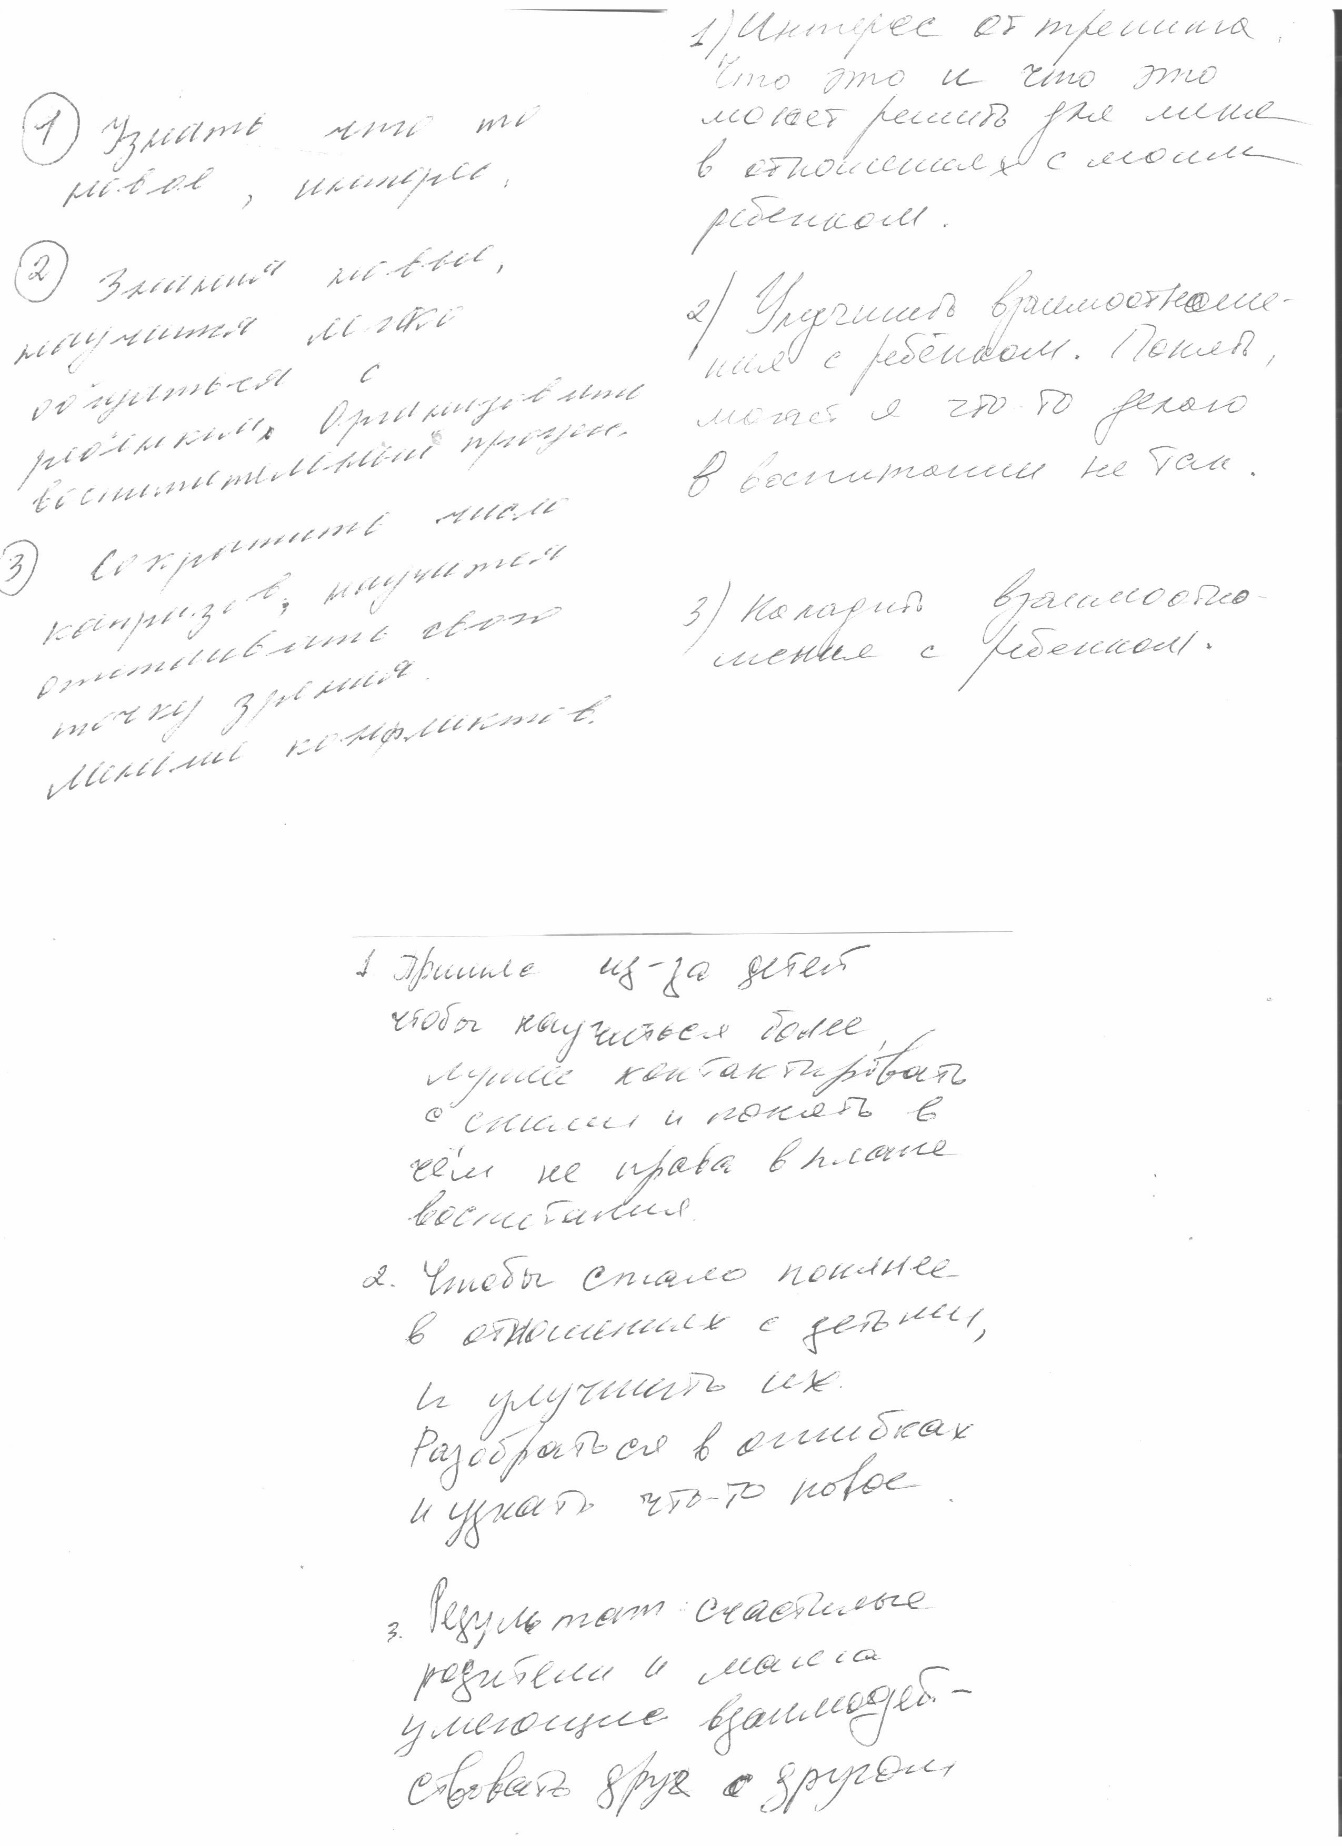 1 Узнать что то
новое, интерес.
2 Знания новые,
научится легко
общаться с
ребёнком. Организовать
воспитательный процесс.
3 Сократить число
капризов, научится
отстаивать свою
точку зрения.
Меньше конфликтов.
1) Интерес от тренинга.
Что это и что это
может решить для меня
в отношениях с моим
ребенком.
2) Улучшить взаимоотноше-
ния с ребёнком. Понять,
может я что-то делаю
в воспитании не так.
3) Наладить взаимоотно-
шения с ребенком.
1 Пришла из-за детей
чтобы научиться более
лучше контактировать
с ними и понять в
чём не права в плане
воспитания.
2. Чтобы стало понянее
в отношениях с детьми,
и улучшить их.
Разобраться в ошибках
и узнать что-то новое.
3. Результат счастливые
родители и
умеющие взаимодей-
ствовать друг с другом